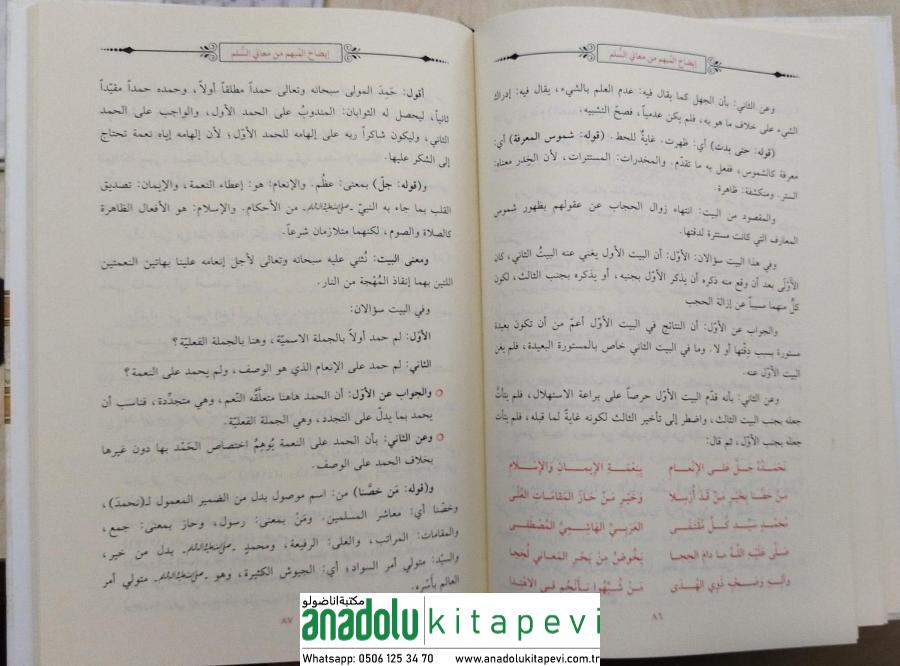 إيضاح المبهم من معاني السُّلم
وعن الثاني: بأن الجهل كما يقال فيه: عدم العلم بالشيء، يقال فيه: إدراك
الشيء على خلاف ما هو به، فلم يكن عدمياً، فصحَّ التشبيه.
(قوله: حتى بدت) أي: ظهرت، غايةٌ للحط. (قوله: شموس المعرفة) أي:
معرفة كالشموس، ففعل به ما تقدّم. والمخدرات: المستترات، لأن الخِدر معناه:
الستر. ومنكشفة: ظاهرة.
والمقصود من البيت: انتهاء زوال الحجاب عن عقولهم بظهور شموس
المعارف التي كانت مستترة لدقتها.
وفي هذا البيت سؤالان: الأوّل: أن البيت الأول يغني عنه البيتُ الثاني، كان
الأَوْلَى بعد أن وقع منه ذكره أن يذكر الأوّل بجنبه، أو يذكره بجنب الثالث، لكون
كلٍّ منهما سبباً عن إزالة الحجب
والجواب عن الأول: أن النتائج في البيت الأوّل أعمّ من أن تكون بعيدة
مستورة بسبب دِقّتها أو لا. وما في البيت الثاني خاص بالمستورة البعيدة، فلم يغنِ
البيت الأوّل عنه.
وعن الثاني: بأنه قدّم البيت الأول حرصاً على براعة الاستهلال، فلم يتأتَّ
جعله بجنب البيت الثالث، واضطر إلى تأخير الثالث لكونه غايةً لما قبله، فلم يتأت
جعله بجنب الأوّل، ثم قال:
نَحمَدُهُ جَلَّ عَلى الإِنْعامِ بِنِعْمَةِ الإِيمانِ وَالإِسْلامِ
مَنْ خَصَّنا بِخَيْرِ مَنْ قَدْ أُرْسِلا وَخَيْرِ مَنْ حَازَ المَقَاماتِ العُلَى
مُحَمَّدٍ سَيِّدِ كُلِّ مُقْتَفَى العَرَبِيِّ الهَاشِمِيِّ المُصْطَفَى
صَلَّى عَلَيْهِ اللَّهُ مَا دامَ الحِجَا يَخُوضُ مِنْ بَحْرِ المَعانِي لُجَجا
وآلِهِ وَصَحْبِهِ ذَوِي الهُدَى مَنْ شُبِّهُوا بِأَنْجُمٍ في الاهْتِدا
٨٦
إيضاح المبهم من معاني السُّلم
أقول: حَمِدَ المولى سبحانه وتعالى حمداً مطلقاً أولاً، وحمده حمداً مقيّداً
ثانياً، ليحصل له الثوابان: المندوبُ على الحمد الأول، والواجب على الحمد
الثاني، وليكون شاكراً ربه على إلهامه للحمد الأوّل؛ لأن إلهامه إياه نعمة تحتاج
إلى الشكر عليها.
و(قوله: جلّ) بمعنى: عظُم. والإنعام: هو: إعطاء النعمة، والإيمان: تصديق
القلب بما جاء به النبيّ ـ صلى الله عليه وسلم ـ من الأحكام. والإسلام: هو الأفعال الظاهرة
كالصلاة والصوم، لكنهما متلازمان شرعاً.
ومعنى البيت: نُثني عليه سبحانه وتعالى لأجل إنعامه علينا بهاتين النعمتين
اللتين بهما إنقاذ المُهْجة من النار.
وفي البيت سؤالان:
الأوّل: لم حمد أولاً بالجملة الاسميّة، وهنا بالجملة الفعليّة؟
الثاني: لم حمد على الإنعام الذي هو الوصف، ولم يحمد على النعمة؟
والجواب عن الأوّل: أن الحمد هاهنا متعلَّقُه النّعم، وهي متجدِّدة، فناسب أن
يحمد بما يدلّ على التجدد، وهي الجملة الفعليّة.
وعن الثاني: بأن الحمد على النعمة يُوهِمُ اختصاص الحَمْد بها دون غيرها
بخلاف الحمد على الوصف.
و(قوله: مَن خصَّنا) من: اسم موصول بدل من الضمير المعمول لـ(نحمد)،
وخصّنا أي: معاشر المسلمين. ومَنْ بمعنى: رسول، وحاز بمعنى: جمع،
والمقامات: المراتب، والعلى: الرفيعة، ومحمدٍ ـ صلى الله عليه وسلم ـ بدل من خير،
والسيِّد: متولي أمر السواد؛ أي: الجيوش الكثيرة، وهو ـ صلى الله عليه وسلم ـ متولي أمر
العالم بأسْرِه.
٨٧
مكتبة اناضولو
anadolu kitapevi
Whatsapp: 0506 125 34 70 www.anadolukitapevi.com.tr